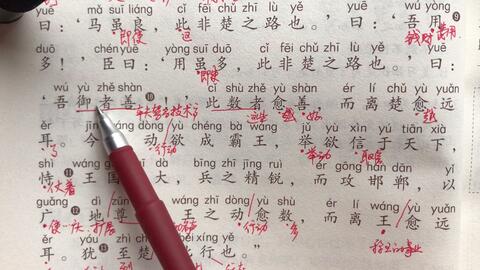 yuē mǎ suī liáng cǐ fēi chǔ zhī lù yě yuē wú yòng
曰:‘马虽良,此非楚之路也。’曰:‘吾用⑨
即使 这 我的 费用
duō chén yuē yòng suī duō cǐ fēi chǔ zhī lù yě yuē
多!’臣曰:‘用虽多,此非楚之路也。’曰:
即使
wú yù zhě shàn cǐ shù zhě yù shàn ér lí chǔ yù yuǎn
‘吾御者善⑩!’此数者愈善,而离楚愈远
车夫驾车技术 这些 越 好 越
ěr jīn wáng dòng yù chéng bà wáng jǔ yù xìn yú tiān xià
耳。今 动欲成霸王,举欲信于天下,
了 行动 举动 取信
shì wáng guó dà bīng zhī jīng ruì ér gōng hán dān yǐ
恃⑪王国 大,兵之精锐,而攻邯郸,以
仗着
guǎng dì zūn wáng zhī dòng yù shuò ér lí wáng yù yuǎn
广⑫地尊 王之动愈数,而离王愈远
使 扩展 行动 多
ěr yóu zhì běi xíng yě
耳。犹⑬至楚 行也。”